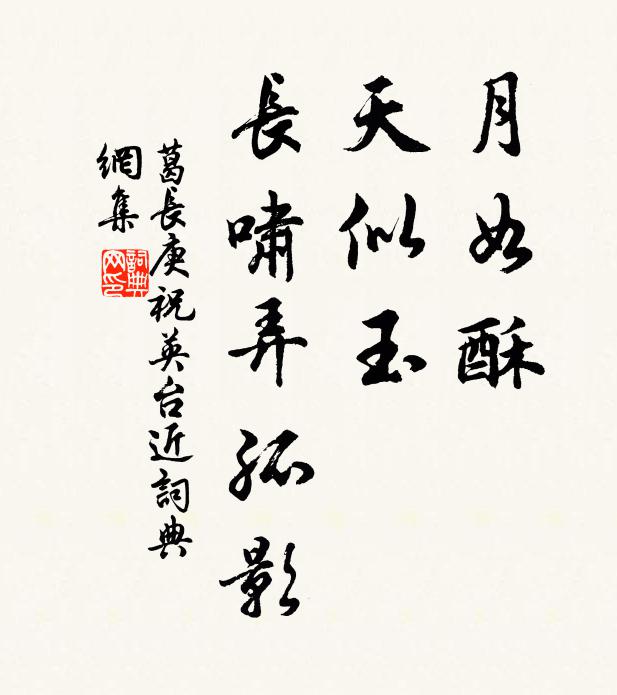 月如酥
天似玉
長嘯弄孤影
葛長庚祝英台近詞典
網集
詞典網印